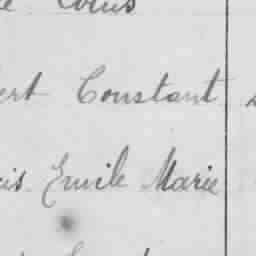 Louis
ert Constant
is Emile Marie